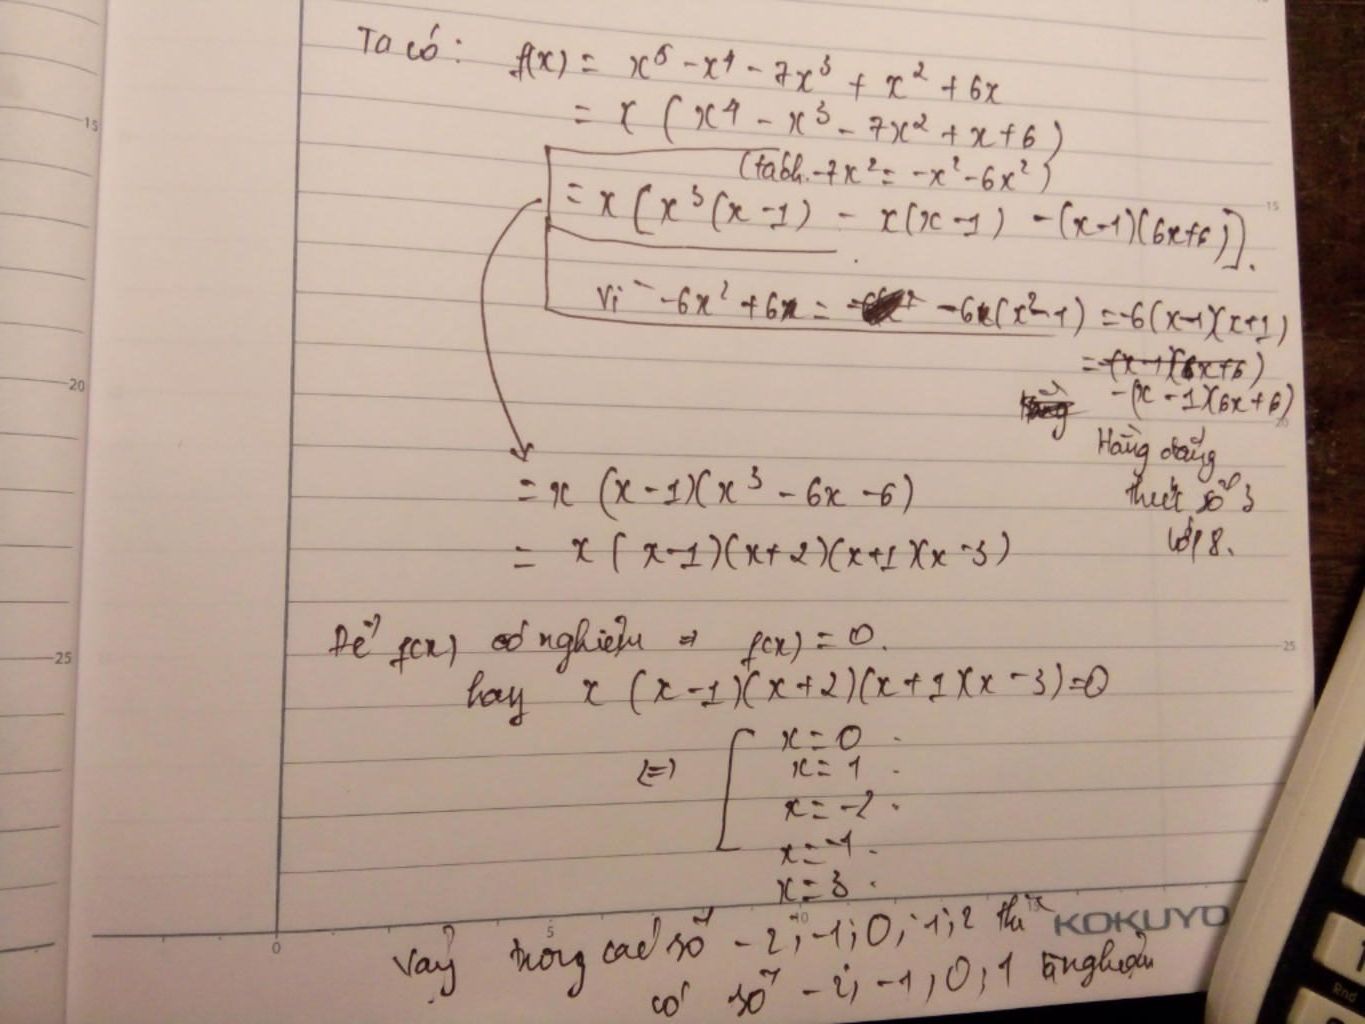 Ta có: f(x) = x⁵ - x⁴ - 7x³ + x² + 6x
= x (x⁴ - x³ - 7x² + x + 6)
(tách -7x² = -x² - 6x²)
= x [x³(x-1) - x(x-1) - (x-1)(6x+6)].
15
15
Vì -6x² + 6 = -6(x²-1) = -6(x-1)(x+1)
= -(x-1)(6x+6)
20
-(x-1)(6x+6)
20
Hằng đẳng
thức số 3
lớp 8.
= x (x-1)(x³ - 6x - 6)
= x (x-1)(x+2)(x+1)(x-3)
Để f(x) có nghiệm => f(x) = 0.
25
25
hay x (x-1)(x+2)(x+1)(x-3)=0
<=> x = 0
x = 1
x = -2
x = -1
x = 3
0 5 10 15 KOKUYO
Vậy trong các số -2; -1; 0; 1; 2 thì
có số -2; -1; 0; 1 là nghiệm
Rnd